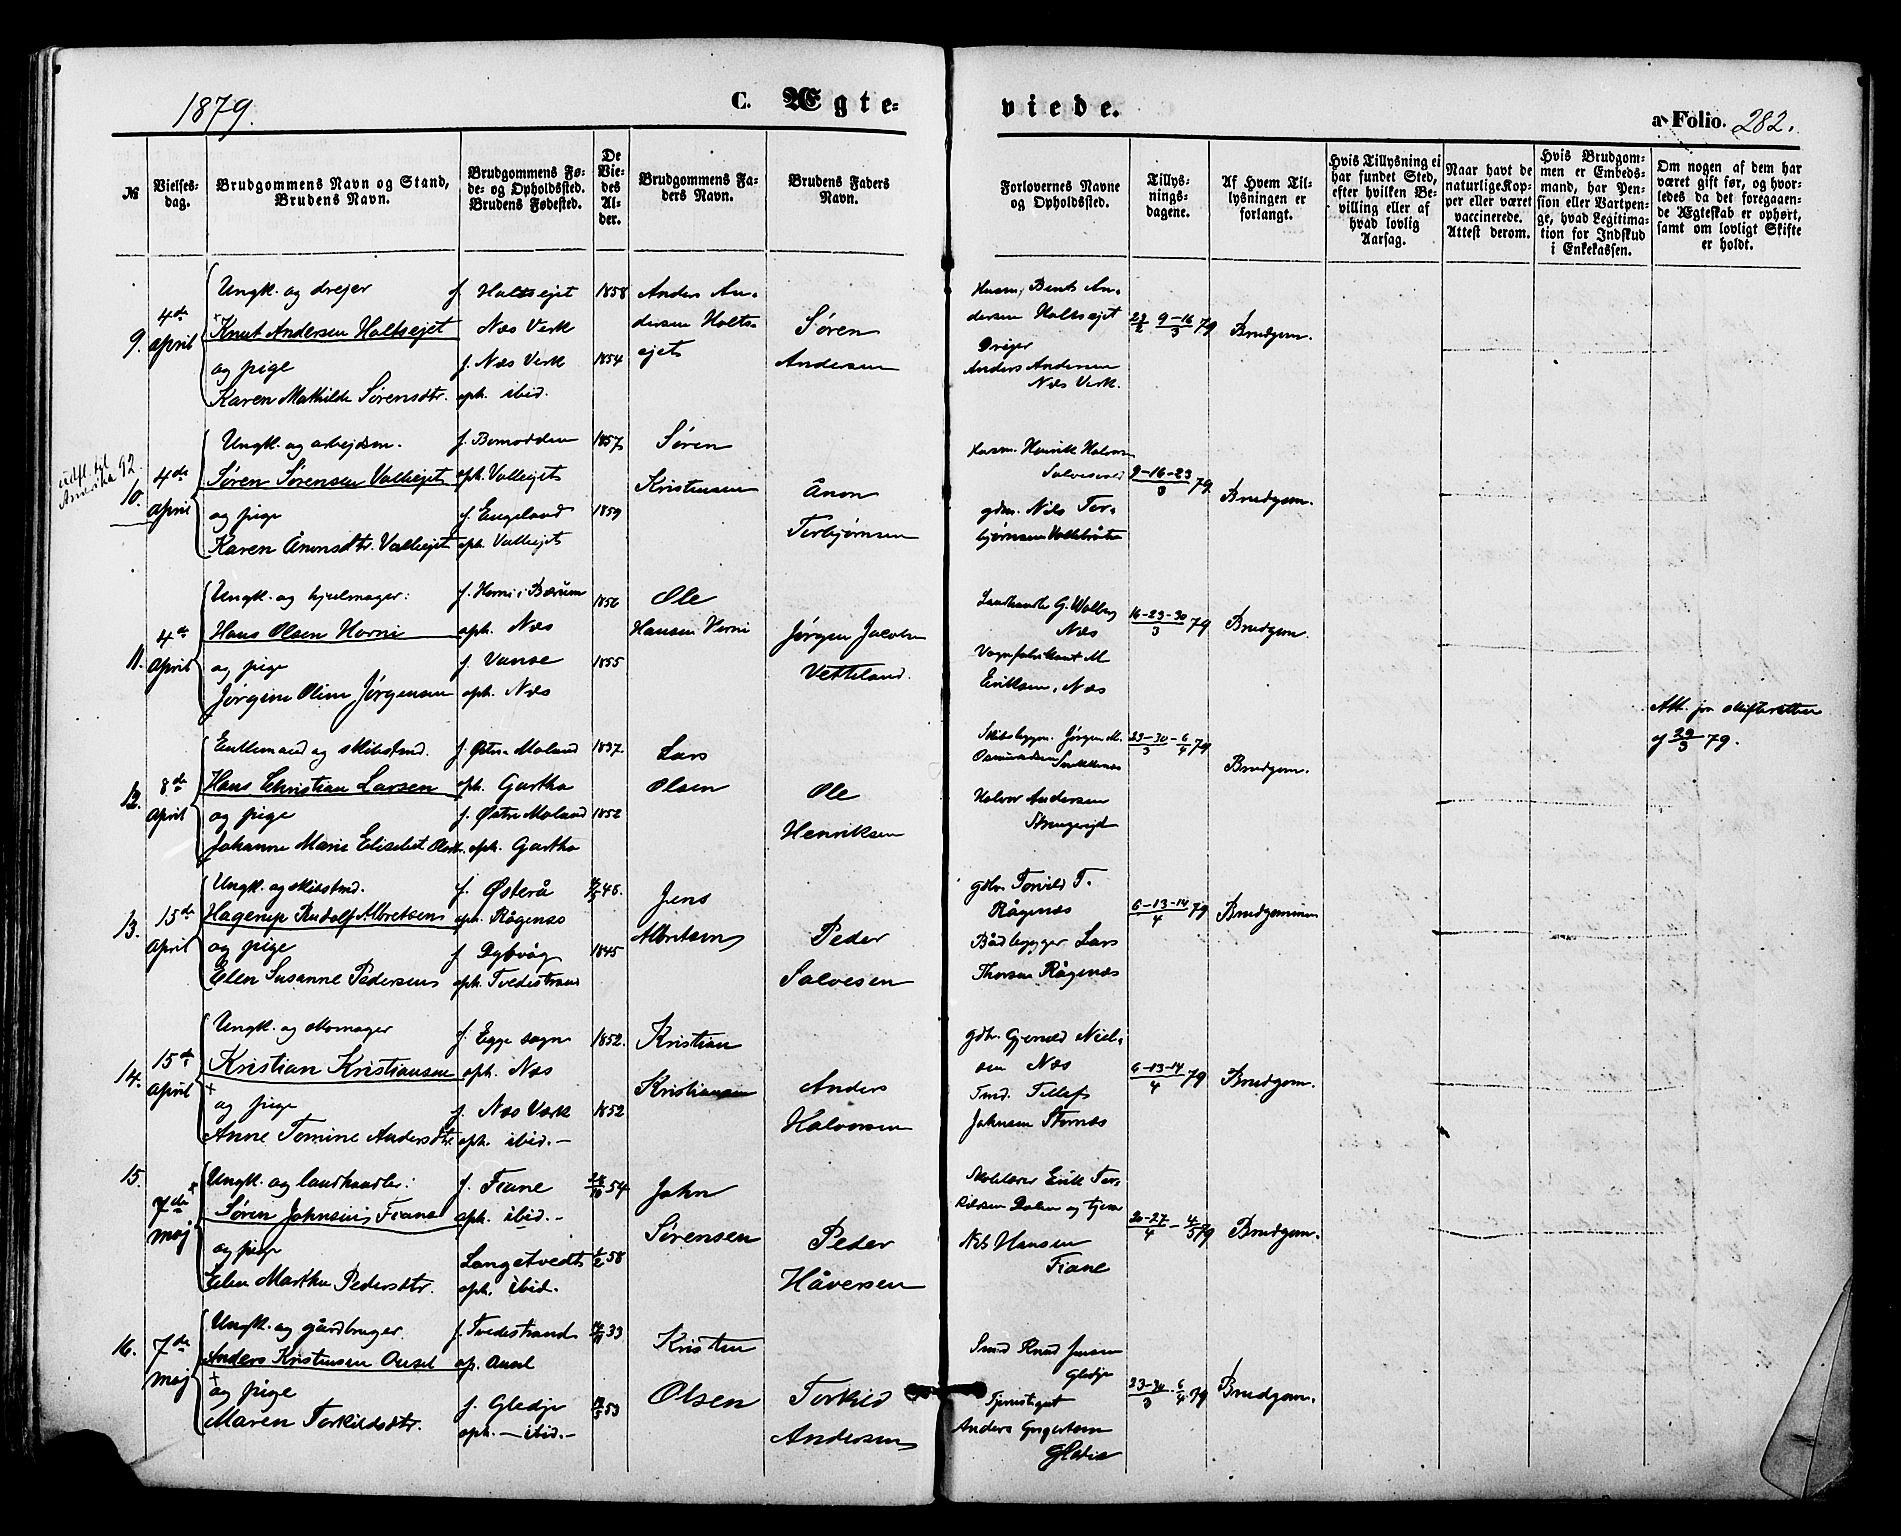 1879.
C. Ægte-
viede.
a Folio. 282.
№
Vielses-
dag.
Brudgommens Navn og Stand,
Brudens Navn.
Brudgommens Fø-
de- og Opholdssted.
Brudens Fødested.
De
Vie-
des
Al-
der.
Brudgommens Fa-
ders Navn.
Brudens Faders
Navn.
Forlovernes Navne
og Opholdssted.
Tillys-
nings-
dagene.
Af Hvem Til-
lysningen er
forlangt.
Hvis Tillysning ei
har fundet Sted,
efter hvilken Be-
villing eller af
hvad lovlig
Aarsag.
Naar havt de
naturlige Kop-
per eller været
vaccinerede.
Attest derom.
Hvis Brudgom-
men er Embeds-
mand, har Pen-
sion eller Vartpen-
ge, hvad Legitima-
tion for Indskud
i Enkekassen.
Om nogen af dem har
været gift før, og hvor-
ledes da det foregaaen-
de Ægteskab er ophørt,
samt om lovligt Skifte
er holdt.
9. 4de April
Ungk. og drejer
Knut Andersen Holtsejet
og pige
Karen Mathilde Sørensdtr.
f. Holtsejet
Næs Verk
f. Næs Verk
oph. ibid.
1858
1854
Anders An-
dersen Holts-
ejet
Søren
Andersen
Husm. Bent An-
dersen Holtsejet
Drejer
Anders Andersen
Næs Verk.
23/2 9-16/3 79
Brudgom.
udfl. til
Amerika 92.
10. 4de April
Ungk. og arbejdsm.
Søren Sørensen Valliejet
og pige
Karen Ånonsdtr. Valliejet
f. Bomodden
oph. Valliejet
f. Engeland
oph. Valliejet
1857
1859
Søren
Kristensen
Ånon
Torbjørnsen
Husm. Henrik Halvors
gdm. Nils Tor-
bjørnsen
9-16-23/3 79
Brudgom.
11. 4de April
Ungk. og hjulmager:
Hans Olsen Horni
og pige
Jørgine Oline Jørgensen
f. Horni i Bærum
oph. Næs
f. Vanse
oph. Næs
1856
1855
Ole
Hansen Horni
Jørgen Jacobsen
Vetteland.
Landhandler G. Walberg
Næs
Vognfabrikant M
Eriksen, Næs
16-23-30/3 79
Brudgom.
12. 8de April
Enkemand og skibstmd.
Hans Christian Larsen
og pige
Johanne Marie Elisebet Olsdtr.
f. Østre Moland
oph. Gartha
f. Østre Moland
oph. Gartha
1837
1852
Lars
Olsen
Ole
Henriksen
Skibsbygm. Jørgen M.
Halvor Andersen
23-30/3 - 6/4 79
Brudgom.
Att. fra skifteretten
af 29/3 79.
13. 15de April
Ungk. og skibstmd.
Hagerup Rudolf Albretsen
og pige
Elen Susanne Pedersen
f. Østerå
oph. Rågenæs
f. Dybvåg
oph. Tvedestrand
46.
1845
Jens
Albretsen
Peder
Salvesen
gdbr. Torvild T.
Rågenæs
Bådbygger Lars
Thorsen Rågenæs
6-13-14/4 79
Brudgommen
14. 15de April
Ungk. og skomager
Kristian Kristiansen
og pige
Anne Tomine Andersdtr.
f. Egge sogn
oph. Næs
f. Næs Værk
oph. ibid.-
1852.
1852
Kristian
Kristiansen
Anders
Halvorsen
gdbr. Gjeruld Niel-
sen Næs
Tmd. Tellef
Johnsen Stornæs
6-13-14/4 79
Brudgom.
15. 7de Maj
Ungk. og landhandler:
Søren Johnsen Fiane
og pige
Elen Marthe Pedersdtr.
f. Fiane
oph. ibid.-
Langetvedt
oph. ibid.
54
58
John
Sørensen
Peder
Håversen
Skolelærer Erik Ter-
Nils Hansen
Fiane
20-27/4 - 4/5 79
Brudgom.
16. 7de Maj
Ungk. og gårdbruger
Anders Kristensen Ousel
og pige
Maren Torkildsdtr.
f. Tvedestrand
op. Ausel
f. Gledje
oph. - ibid.-
33
53
Kristen
Olsen
Torkild
Andersen
Smed Knud Jensen
Gledje
Anders
Gledje
23-30/3 - 6/4 79
Brudgom.